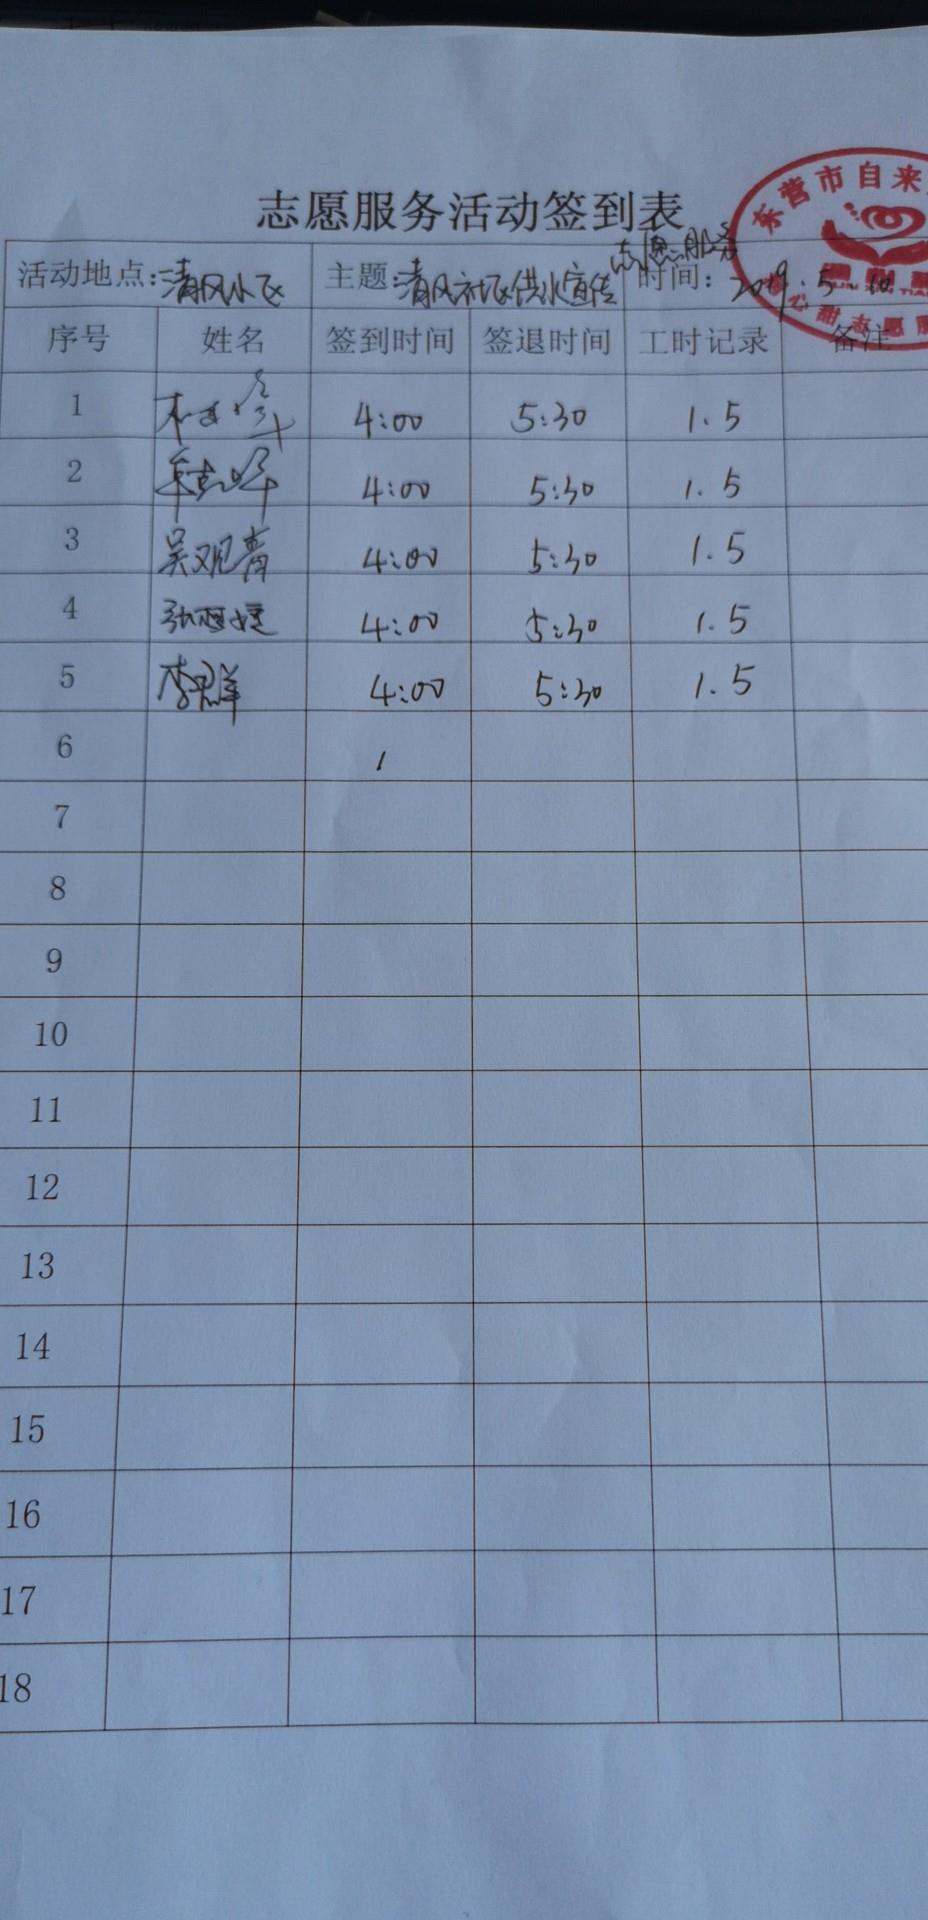 志愿服务活动签到表
东营市自来
甜志愿服
志愿服务
活动地点:清风小区 主题:清风社区供水宣传 时间: 2019.5.10
序号 姓名 签到时间 签退时间 工时记录 备注
1 4:00 5:30 1.5
2 4:00 5:30 1.5
3 吴观青 4:00 5:30 1.5
4 4:00 5:30 1.5
5 4:00 5:30 1.5
6
7
8
9
10
11
12
13
14
15
16
17
18